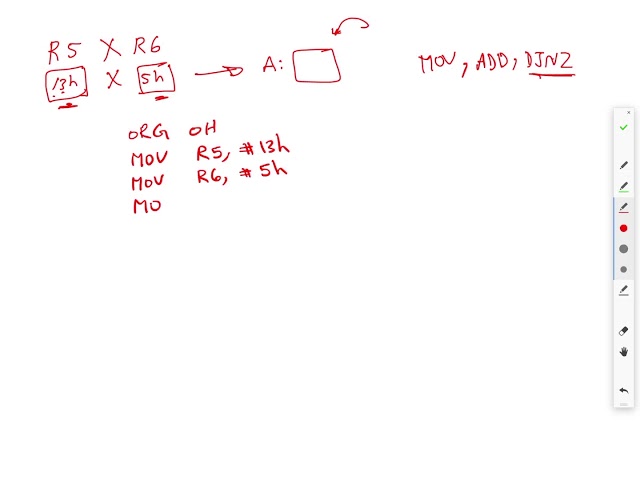 R5 X R6
13h X 5h → A:
MOV, ADD, DJNZ
ORG 0H
MOV R5, #13h
MOV R6, #5h
MO